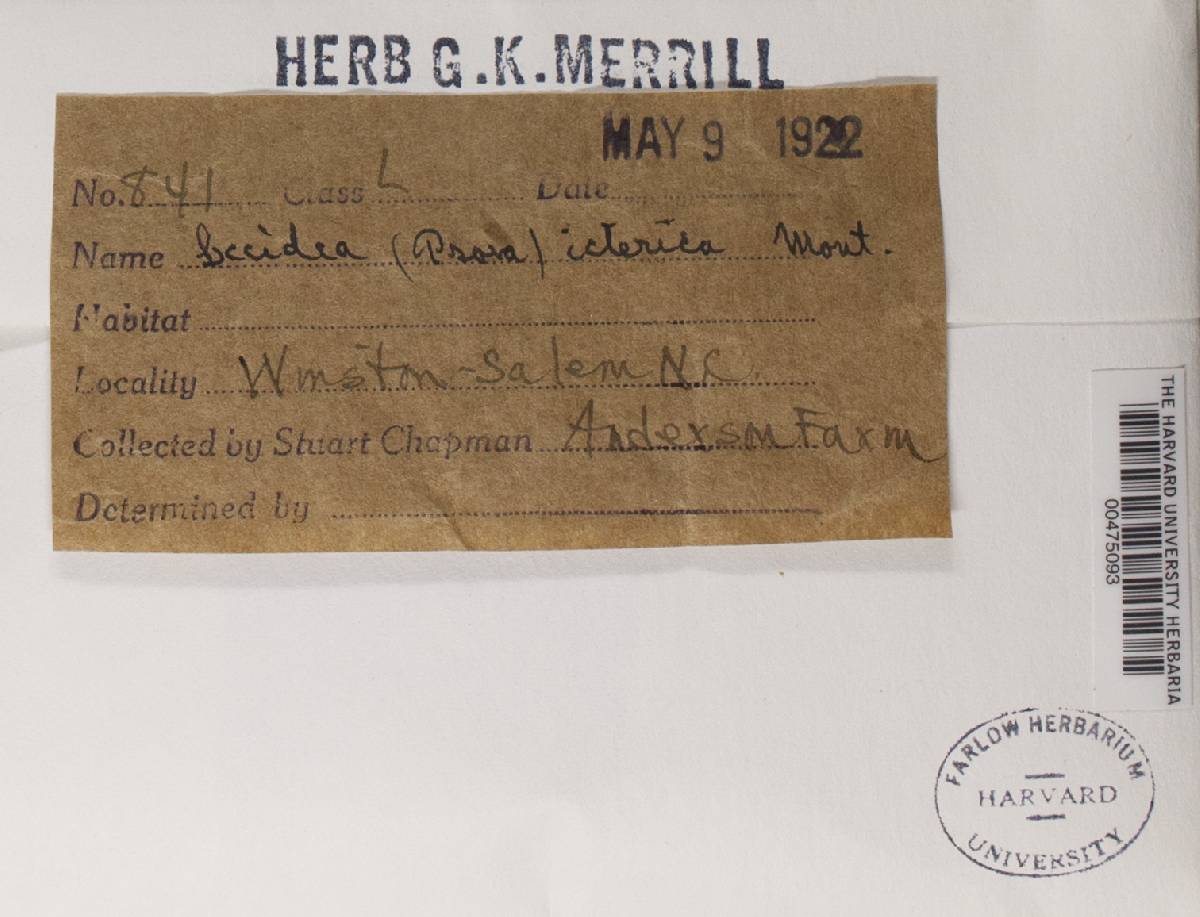 HERB G.K.MERRILL
MAY 9 1922
No. 841 Class L Date
Name Lecidea (Psora) icterica Mont.
Habitat
Locality Winston-Salem N.C.
Collected by Stuart Chapman Anderson Farm
Determined by
THE HARVARD UNIVERSITY HERBARIA
00475093
FARLOW HERBARIUM
HARVARD
UNIVERSITY